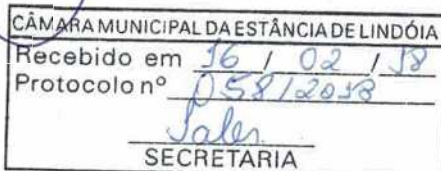 CÂMARA MUNICIPAL DA ESTÂNCIA DE LINDÓIA
Recebido em 16 / 02 / 18
Protocolo nº 058/2018
Sales
SECRETARIA